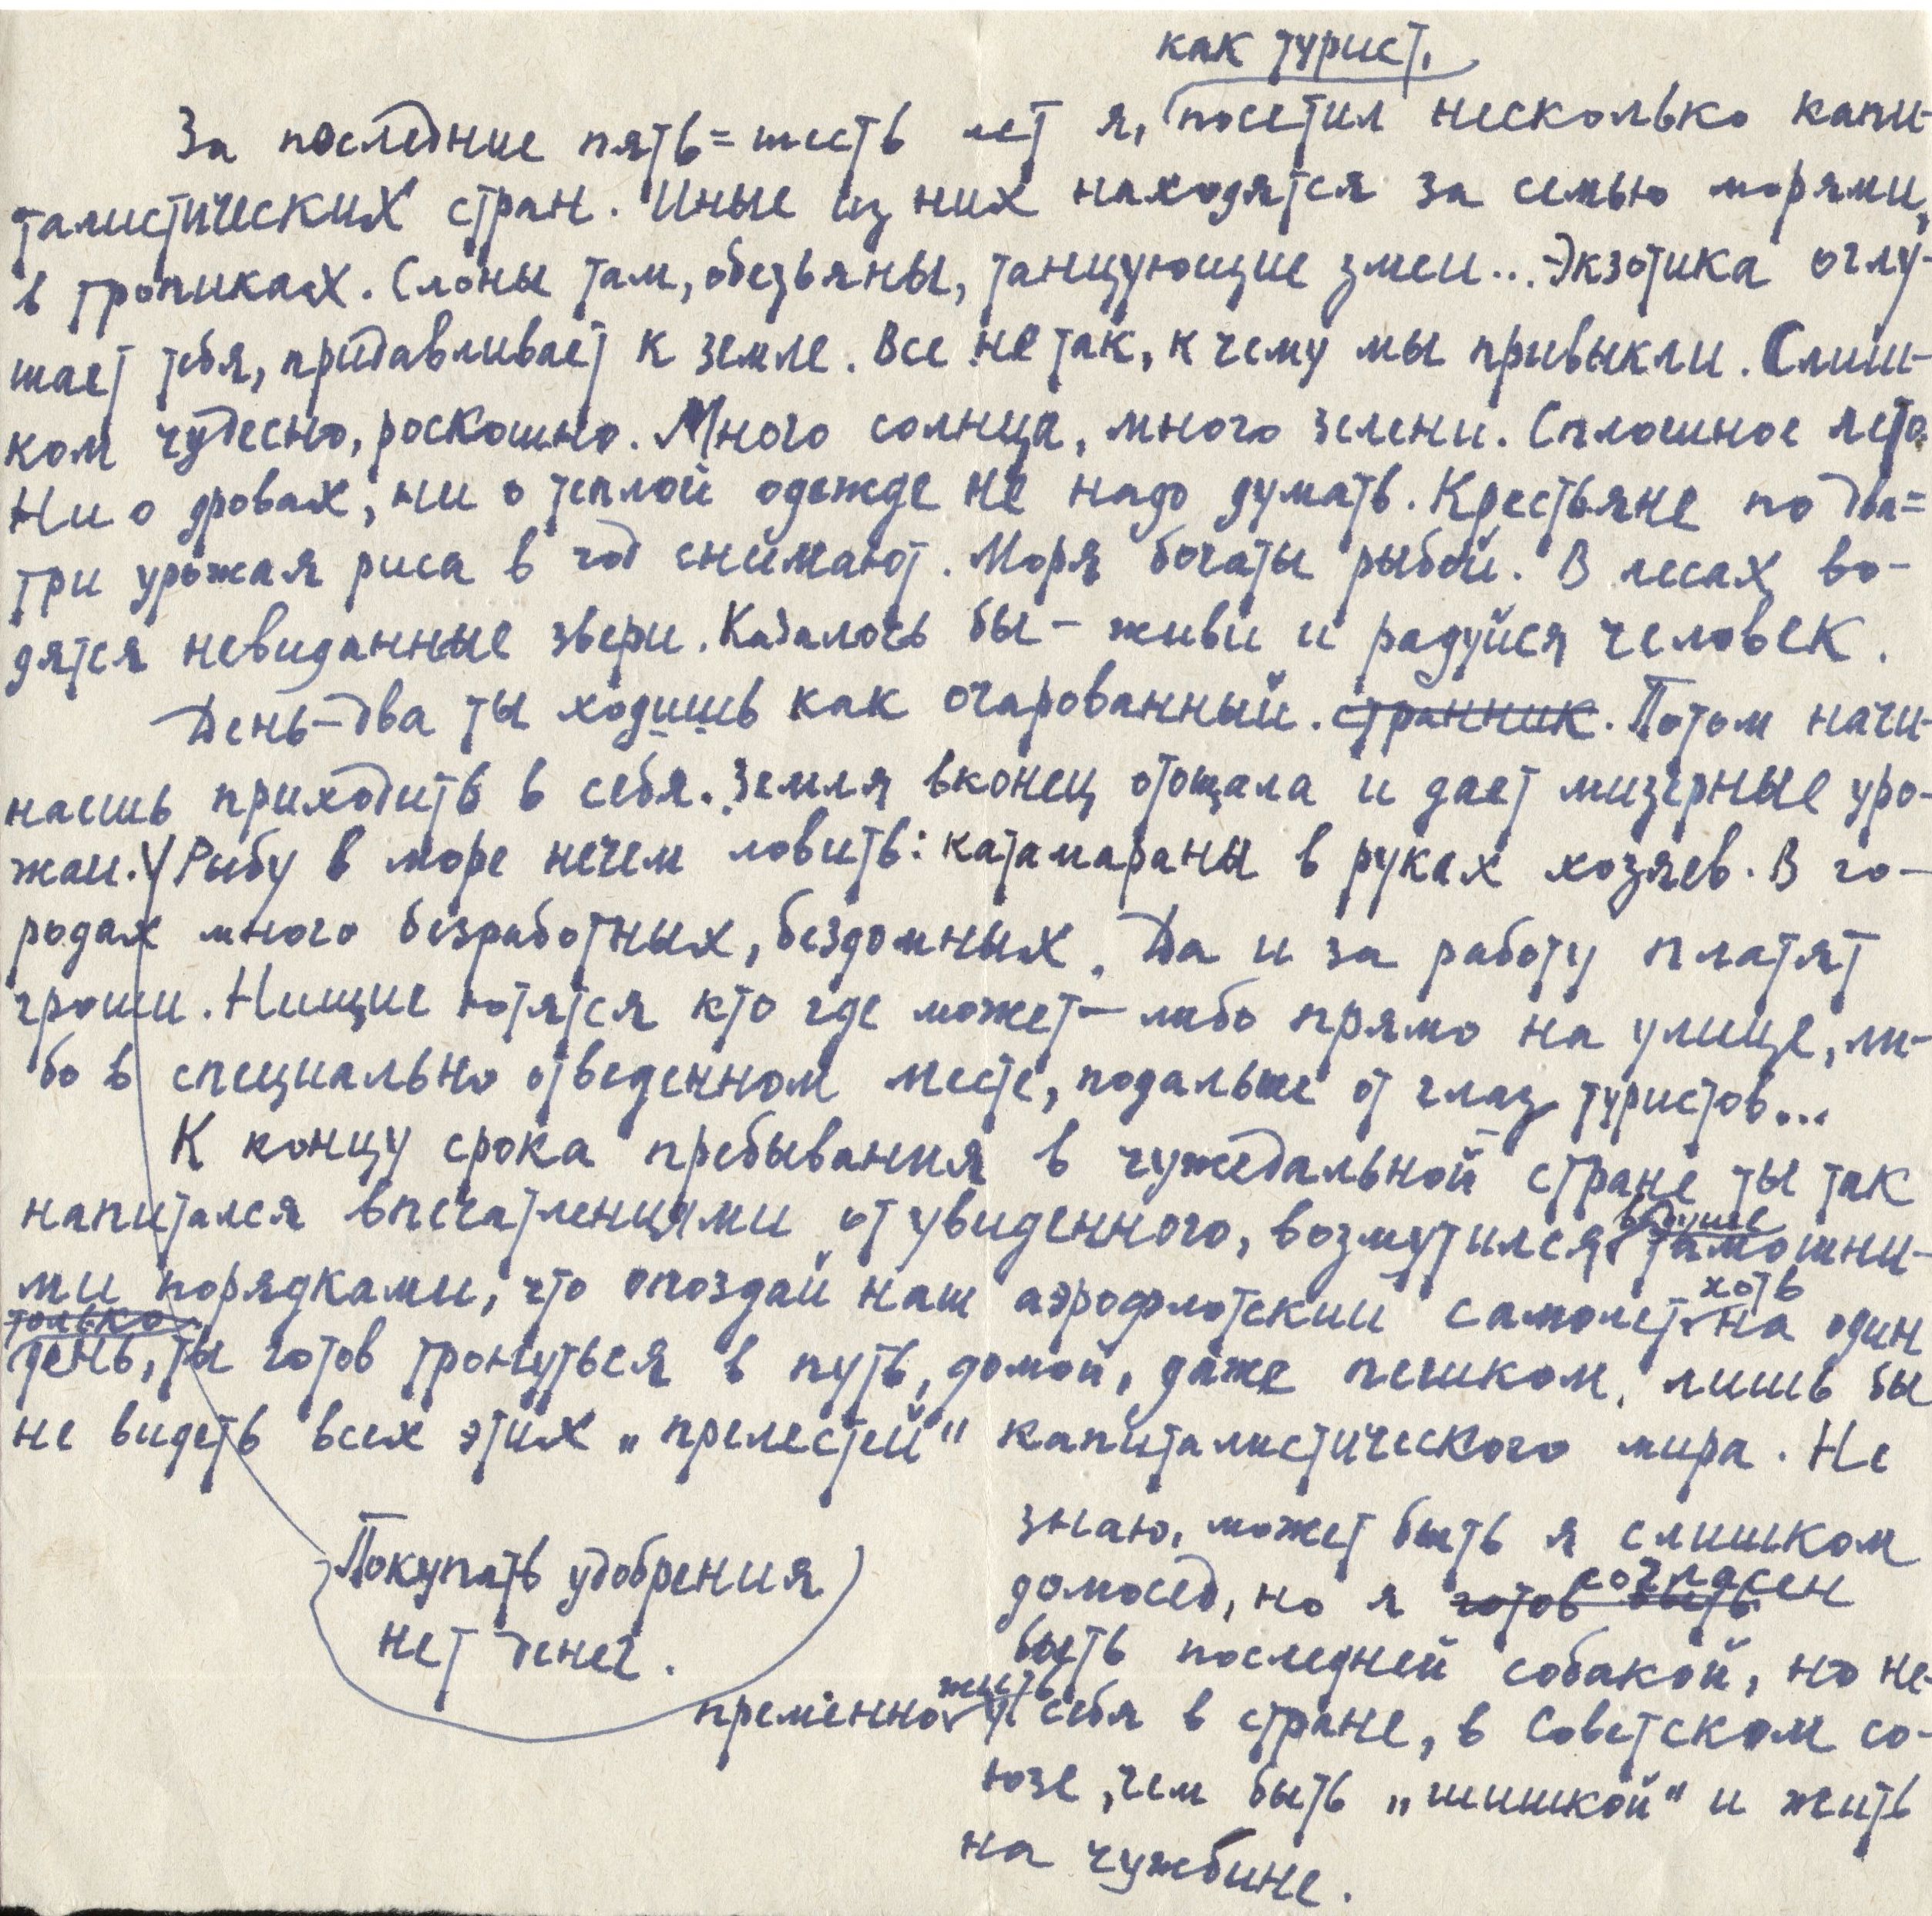 как турист,
За последние пять=шесть лет я, посетил несколько капи-
талистических стран. Иные из них находятся за семью морями,
в тропиках. Слоны там, обезьяны, танцующие змеи... Экзотика оглу-
шает тебя, придавливает к земле. Все не так, к чему мы привыкли. Слиш-
ком чудесно, роскошно. Много солнца, много зелени. Сплошное лето.
Ни о дровах, ни о теплой одежде не надо думать. Крестьяне по два=
три урожая риса в год снимают. Моря богаты рыбой. В лесах во-
дятся невиданные звери. Казалось бы - живи и радуйся человек.
День-два ты ходишь как очарованный. странник. Потом начи-
наешь приходить в себя. Земля вконец отощала и дает мизерные уро-
жаи. Рыбу в море нечем ловить: катамараны в руках хозяев. В го-
родах много безработных, бездомных. Да и за работу платят
гроши. Нищие ютятся кто где может - либо прямо на улице, ли-
бо в специально отведенном месте, подальше от глаз туристов...
К концу срока пребывания в чужедальной стране ты так
напитался впечатленцями от увиденного, возмутился тамошни-
ми порядками, что опоздай наш аэрофлотский самолет на один
хоть
только
день, ты готов тронуться в путь, домой, даже пешком, лишь бы
не видеть всех этих „прелестей" капиталистического мира. Не
знаю, может быть я слишком
домосед, но я готов быть
согласен
быть последней собакой, но не-
пременно у себя в стране, в Советском со-
жить
юзе, чем быть „шишкой" и жить
на чужбине.
Покупать удобрения
нет денег.